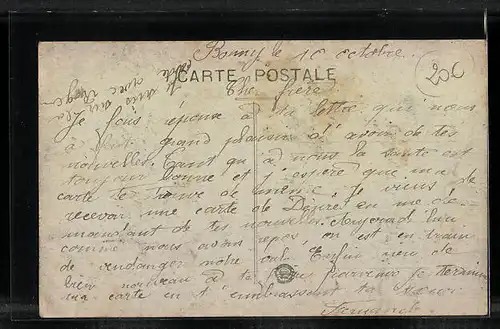 le 10 octobre
206
CARTE POSTALE
Cher frère
Je fais réponse à ta lettre qui nous
à fait grand plaisir d'avoir de tes
nouvelles. Tant qu à nous la santé est
toujour bonne et j'espère que ma
carte te trouve de même. Je viens de
recevoir une carte de Désiré en me
mandant de tes nouvelles. Aujourd hui
comme nous avons repos, on est en train
de vendanger notre Enfin rien de
bien nouveau à te je termine
ma carte en t'embrassant ta sœur